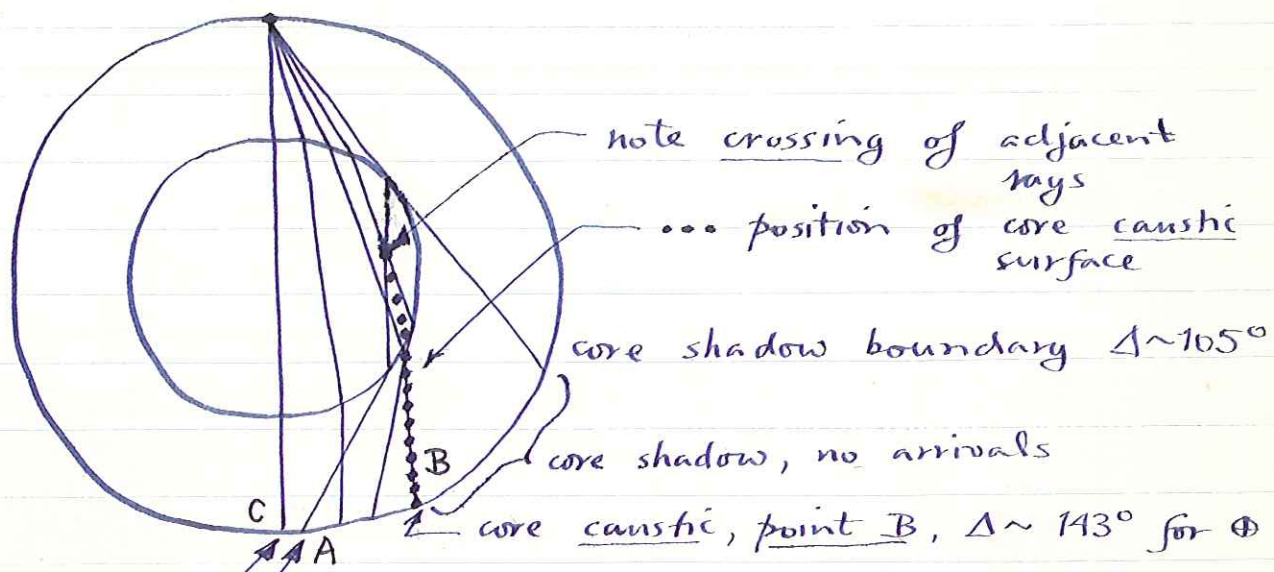 note crossing of adjacent
rays
••• position of core caustic
surface
core shadow boundary Δ~105°
B
core shadow, no arrivals
C
A
core caustic, point B, Δ~ 143° for ⊕